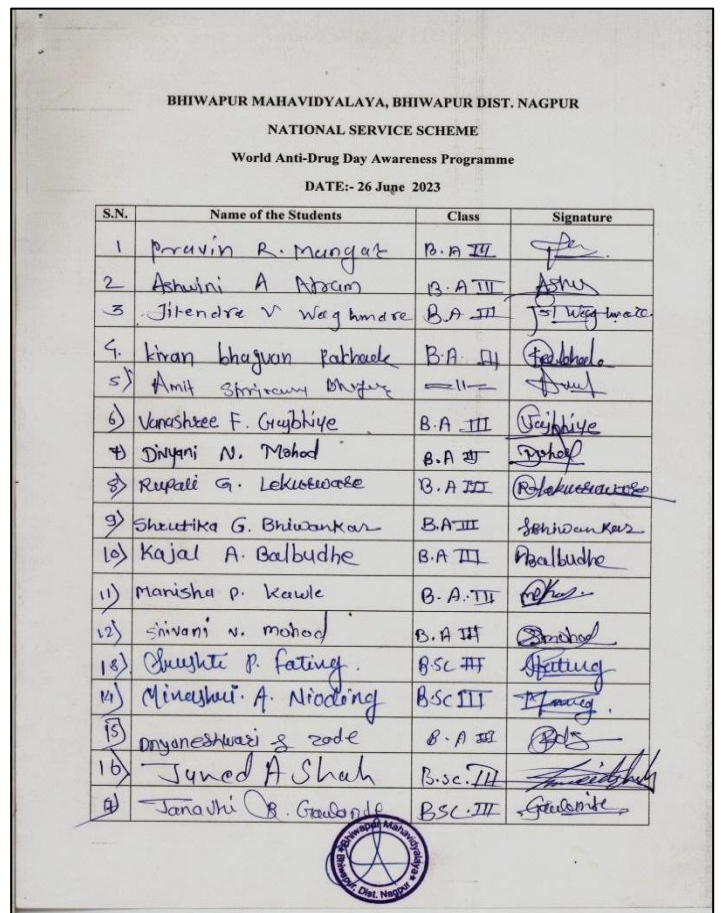 BHIWAPUR MAHAVIDYALAYA, BHIWAPUR DIST. NAGPUR
NATIONAL SERVICE SCHEME
World Anti-Drug Day Awareness Programme
DATE:- 26 June 2023
S.N. Name of the Students Class Signature
1 Pravin R. Mungat B.A III
2 Ashwini A Atram B.A III
3 Jitendra V Waghmare B.A III Waghmare
4. kiran bhagvan B.A. III
5) Amit —11—
6) Vanashree F. Gajbhiye B.A III Gajbhiye
7) Divyani N. Mohod B.A III Mohod
8) Rupali G. B.A III
9) Shrutika G. Bhiwankar B.A III SBhiwankar
10) Kajal A. Balbudhe B.A III Balbudhe
11) Manisha P. Kawle B.A. III
12) Shivani N. mohod B.A III Smohod
13) Shrushti P. fating. B.SC III fating
14) A. B.SC III
15) Dnyaneshwari zode B.A III
16) Juned A Shah B.sc. III
17) Janavhi B.SC.III
Bhiwapur Mahavidyalaya
Bhiwapur, Dist. Nagpur